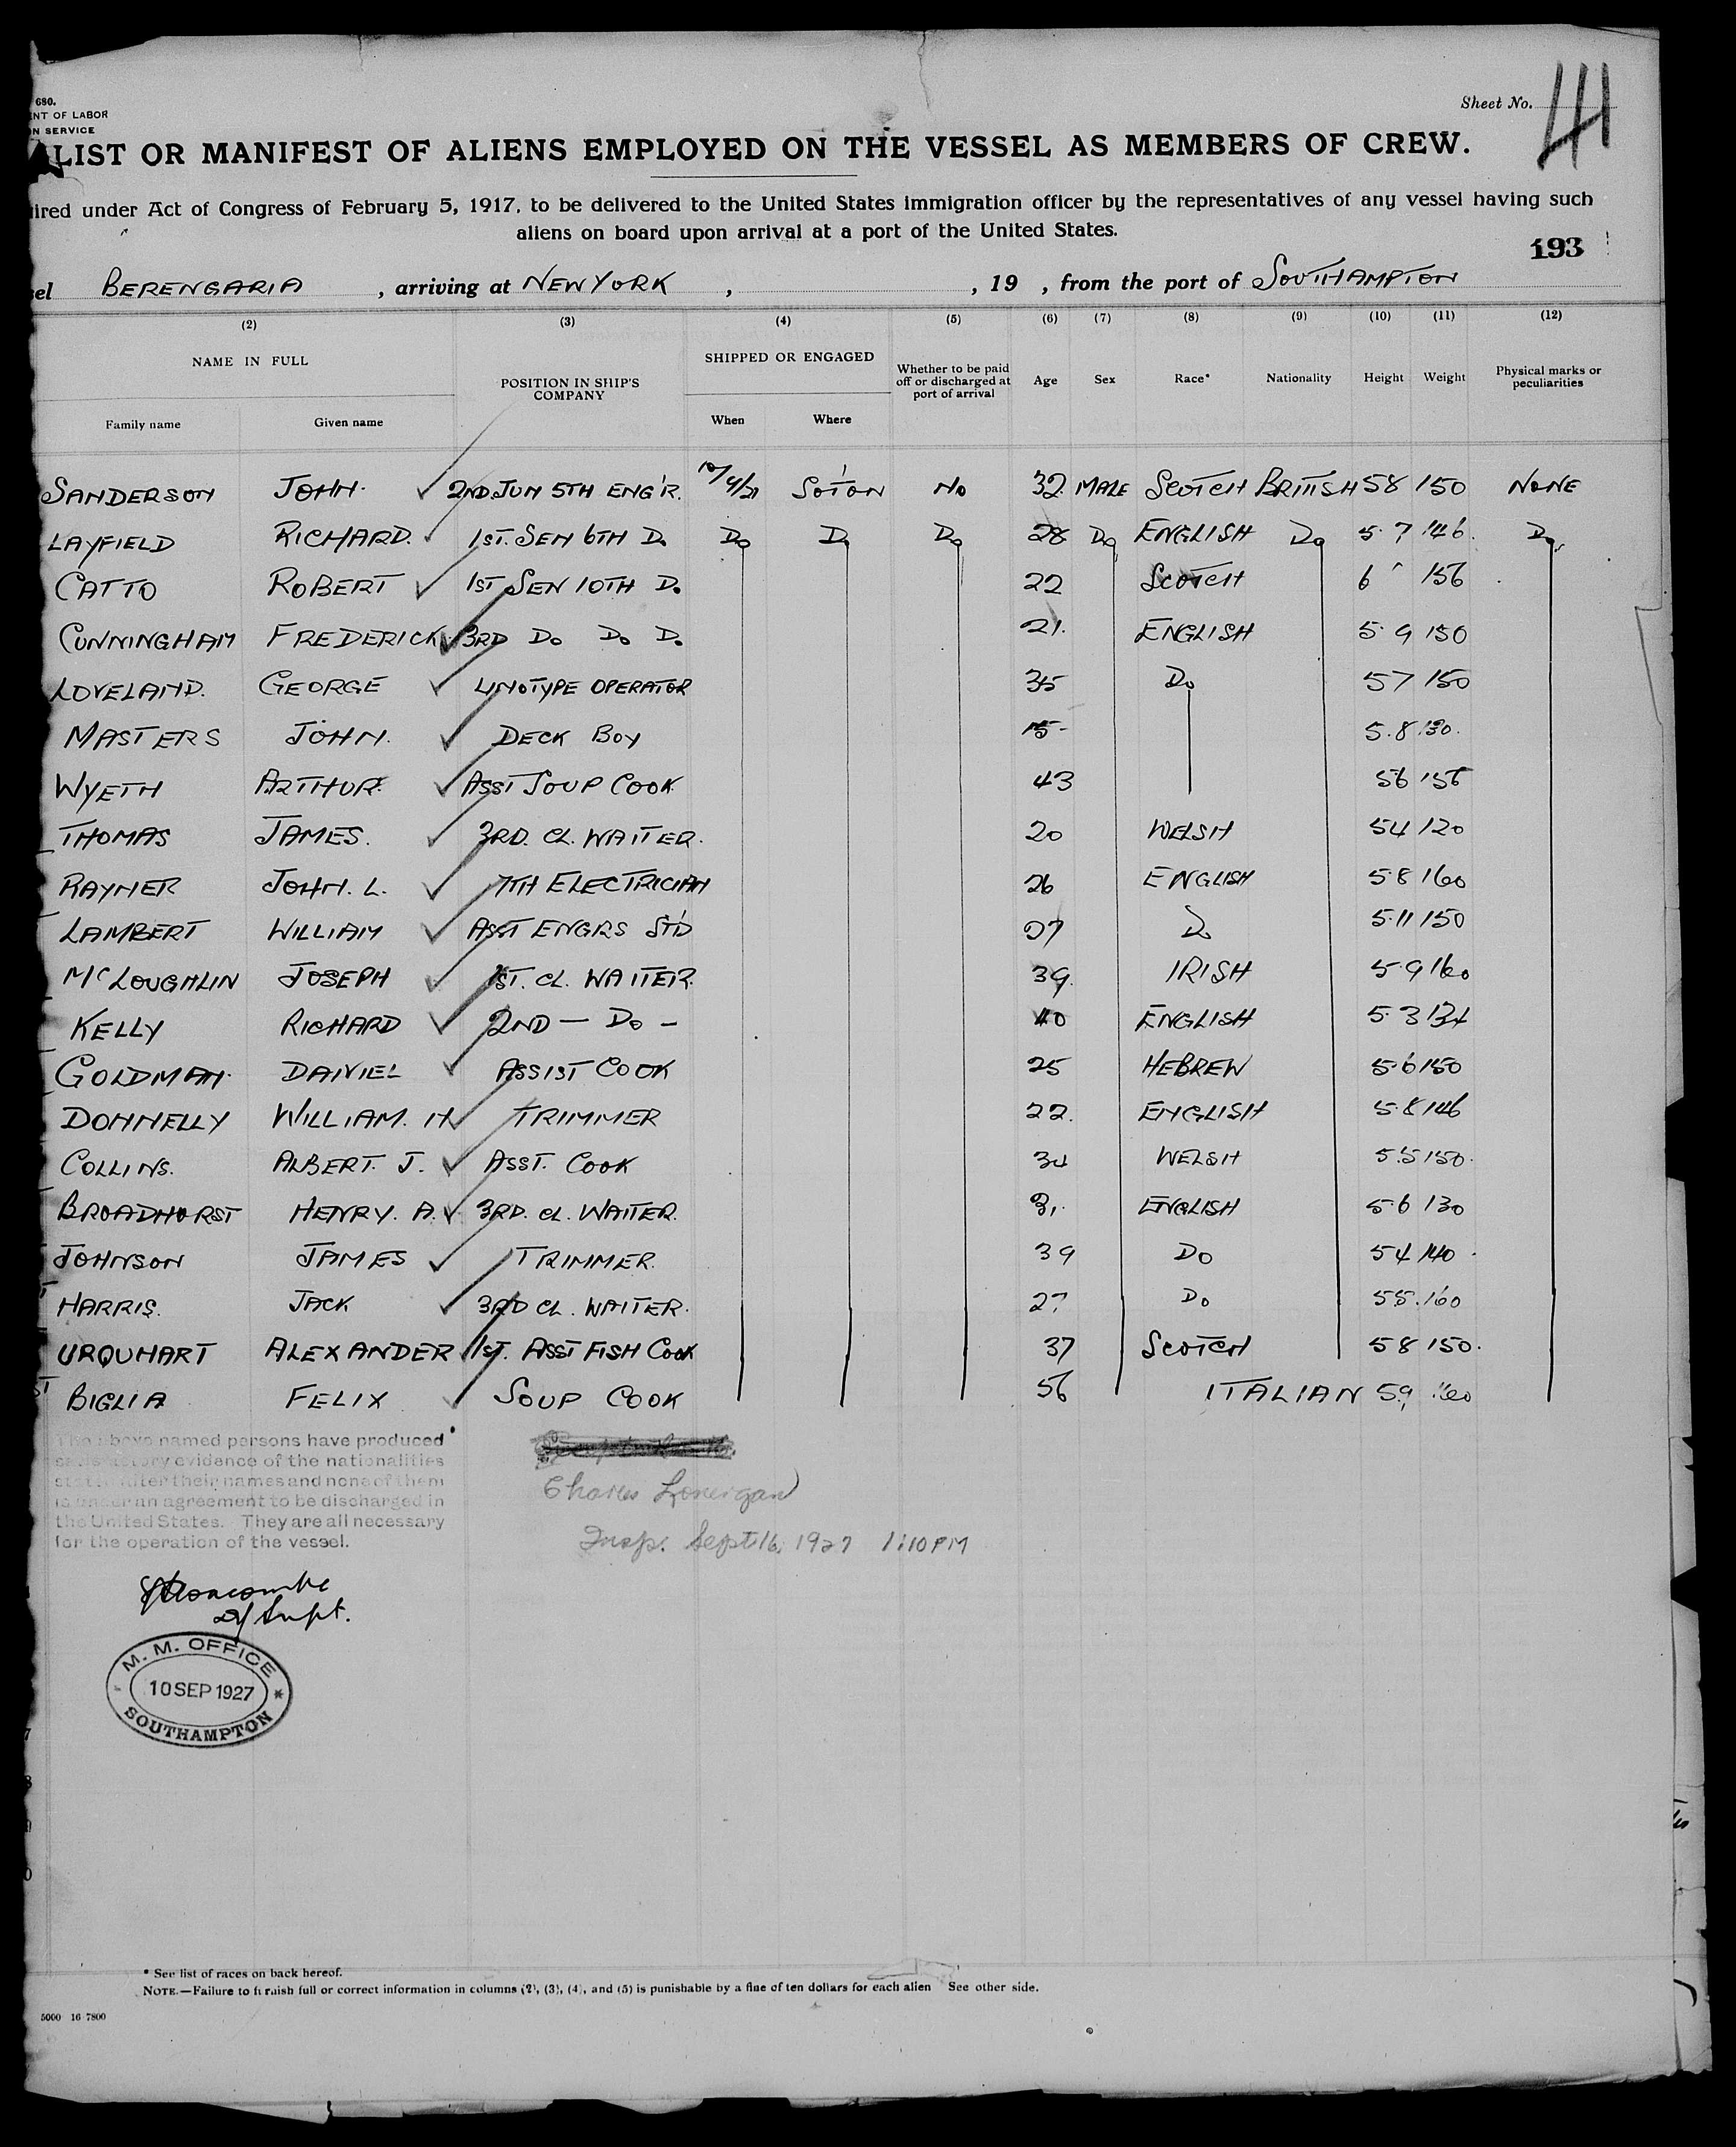 680.
ENT OF LABOR
ON SERVICE
Sheet No. 41
LIST OR MANIFEST OF ALIENS EMPLOYED ON THE VESSEL AS MEMBERS OF CREW.
ired under Act of Congress of February 5, 1917, to be delivered to the United States immigration officer by the representatives of any vessel having such
aliens on board upon arrival at a port of the United States.
193
sel BERENGARIA , arriving at NEW YORK , , 19 , from the port of SOUTHAMPTON
(2) (3) (4) (5) (6) (7) (8) (9) (10) (11) (12)
NAME IN FULL POSITION IN SHIP'S COMPANY SHIPPED OR ENGAGED Whether to be paid off or discharged at port of arrival Age Sex Race* Nationality Height Weight Physical marks or peculiarities
Family name Given name When Where
SANDERSON JOHN. 2ND.JUN 5TH ENG'R. 10/9/27 SO'TON NO 32 MALE SCOTCH BRITISH 58 150 NONE
LAYFIELD RICHARD. 1ST. SEN 6TH Do Do Do Do 28 Do ENGLISH Do 5.7 146. Do
CATTO ROBERT 1ST SEN 10TH Do 22 SCOTCH 6 156
CUNNINGHAM FREDERICK 3RD Do Do Do 21. ENGLISH 5.9 150
LOVELAND. GEORGE LINOTYPE OPERATOR 35 Do 57 150
MASTERS JOHN. DECK BOY 15- 5.8 130.
WYETH ARTHUR. ASST SOUP COOK 43 56 156
THOMAS JAMES. 3RD. CL. WAITER. 20 WELSH 54 120
RAYNER JOHN. L. 7TH ELECTRICIAN 26 ENGLISH 58 160
LAMBERT WILLIAM ASST ENGRS ST'D 27 Do 5.11 150
McLOUGHLIN JOSEPH 1ST. CL. WAITER. 39. IRISH 5.9 160
KELLY RICHARD 2ND — Do — 40 ENGLISH 5.3 134
GOLDMAN. DANIEL ASSIST COOK 25 HEBREW 5.6 150
DONNELLY WILLIAM. H TRIMMER 22. ENGLISH 5.8 146
COLLINS. ALBERT. J. ASST. COOK 34 WELSH 5.5 150.
BROADHURST HENRY. A. 3RD. CL. WAITER. 31. ENGLISH 5.6 130
JOHNSON JAMES TRIMMER. 39 Do 54 140
HARRIS. JACK 3RD CL. WAITER. 27 Do 55. 160
URQUHART ALEXANDER 1ST. ASST FISH COOK 37 SCOTCH 58 150.
BIGLIA FELIX SOUP COOK 56 ITALIAN 59 160
The above named persons have produced
satisfactory evidence of the nationalities
stated after their names and none of them
is under an agreement to be discharged in
the United States. They are all necessary
for the operation of the vessel.
Charles Lonergan
Insp. Sept 16, 1927 1:10 PM
Supt.
M. M. OFFICE
10 SEP 1927
SOUTHAMPTON
* See list of races on back hereof.
NOTE.—Failure to furnish full or correct information in columns (2), (3), (4), and (5) is punishable by a fine of ten dollars for each alien See other side.
5000 16 7800